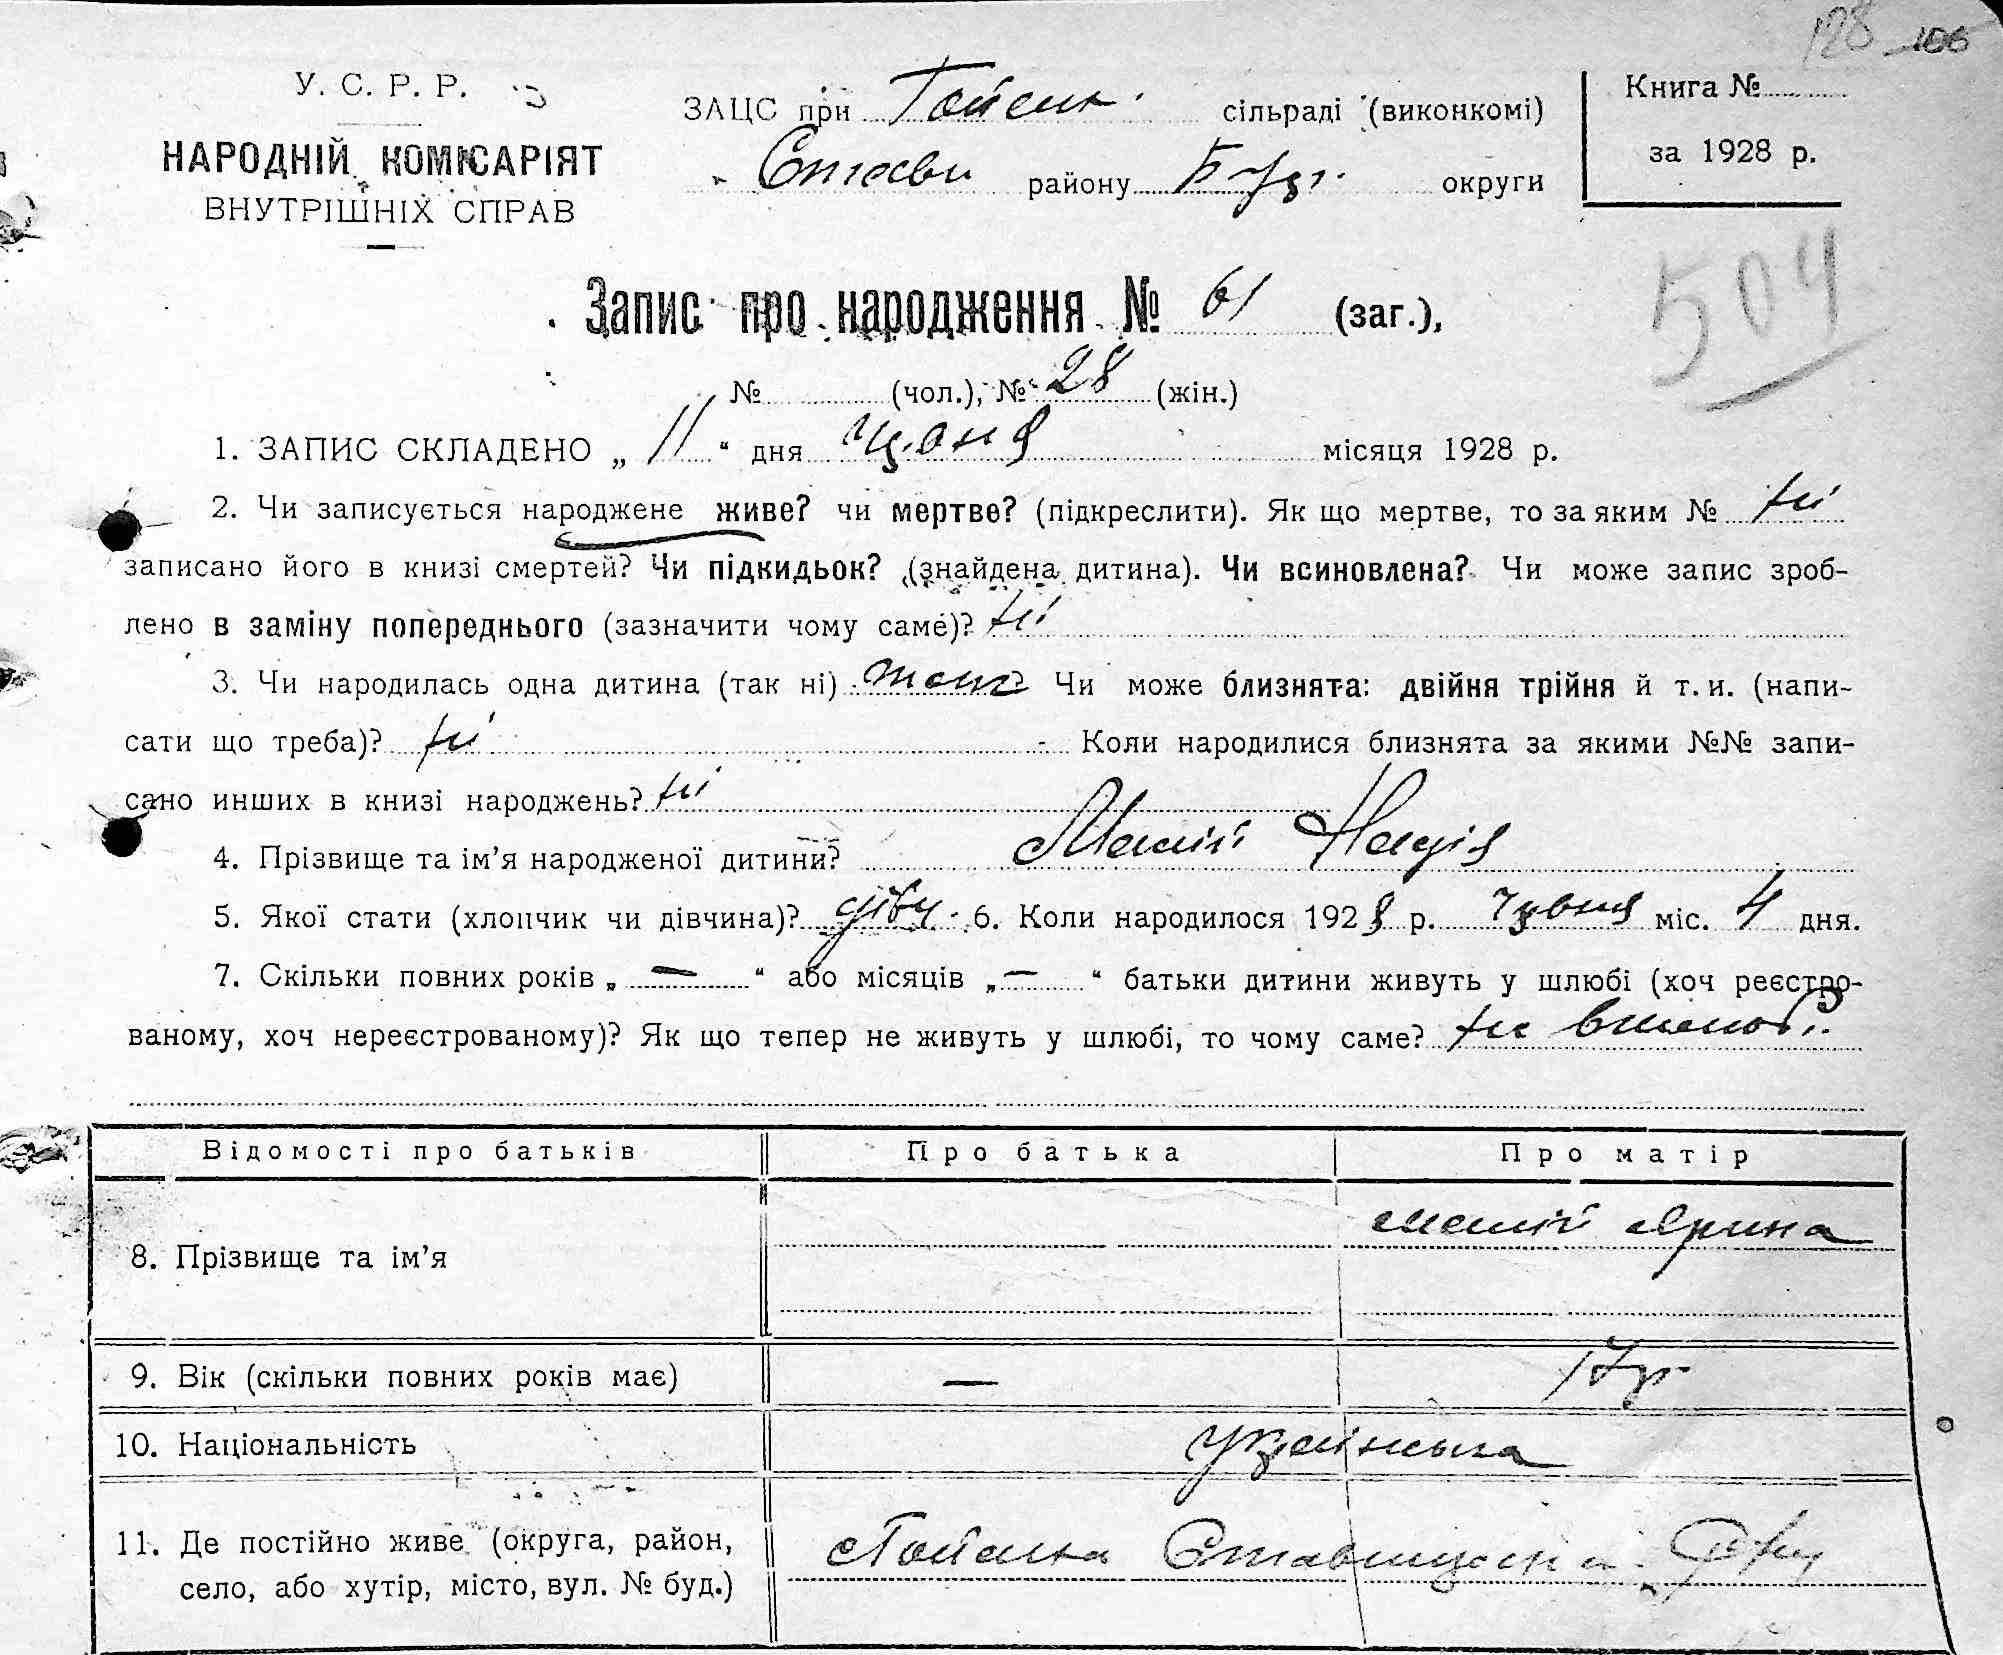 128 106
У. С. Р. Р.
НАРОДНІЙ КОМІСАРІЯТ
ВНУТРІШНІХ СПРАВ
ЗАЦС при сільраді (виконкомі)
району округи
Книга №
за 1928 р.
Запис про народження № 61 (заг.),
504
№ (чол.), № 28 (жін.)
1. ЗАПИС СКЛАДЕНО „ 11 “ дня місяця 1928 р.
2. Чи записується народжене живе? чи мертве? (підкреслити). Як що мертве, то за яким № ні
записано його в книзі смертей? Чи підкидьок? (знайдена дитина). Чи всиновлена? Чи може запис зроб-
лено в заміну попереднього (зазначити чому саме)? ні
3. Чи народилась одна дитина (так ні) Чи може близнята: двійня трійня й т. и. (напи-
сати що треба)? ні Коли народилися близнята за якими №№ запи-
сано инших в книзі народжень? ні
4. Прізвище та ім’я народженої дитини? Надія
5. Якої стати (хлопчик чи дівчина)? дівч. 6. Коли народилося 1928 р. червня міс. 4 дня.
7. Скільки повних років „ — “ або місяців „ — “ батьки дитини живуть у шлюбі (хоч реєстро-
ваному, хоч нереєстрованому)? Як що тепер не живуть у шлюбі, то чому саме? не
Відомості про батьків Про батька Про матір
8. Прізвище та ім’я Ярина
9. Вік (скільки повних років має) — 17 р.
10. Національність українська
11. Де постійно живе (округа, район,
село, або хутір, місто, вул. № буд.)